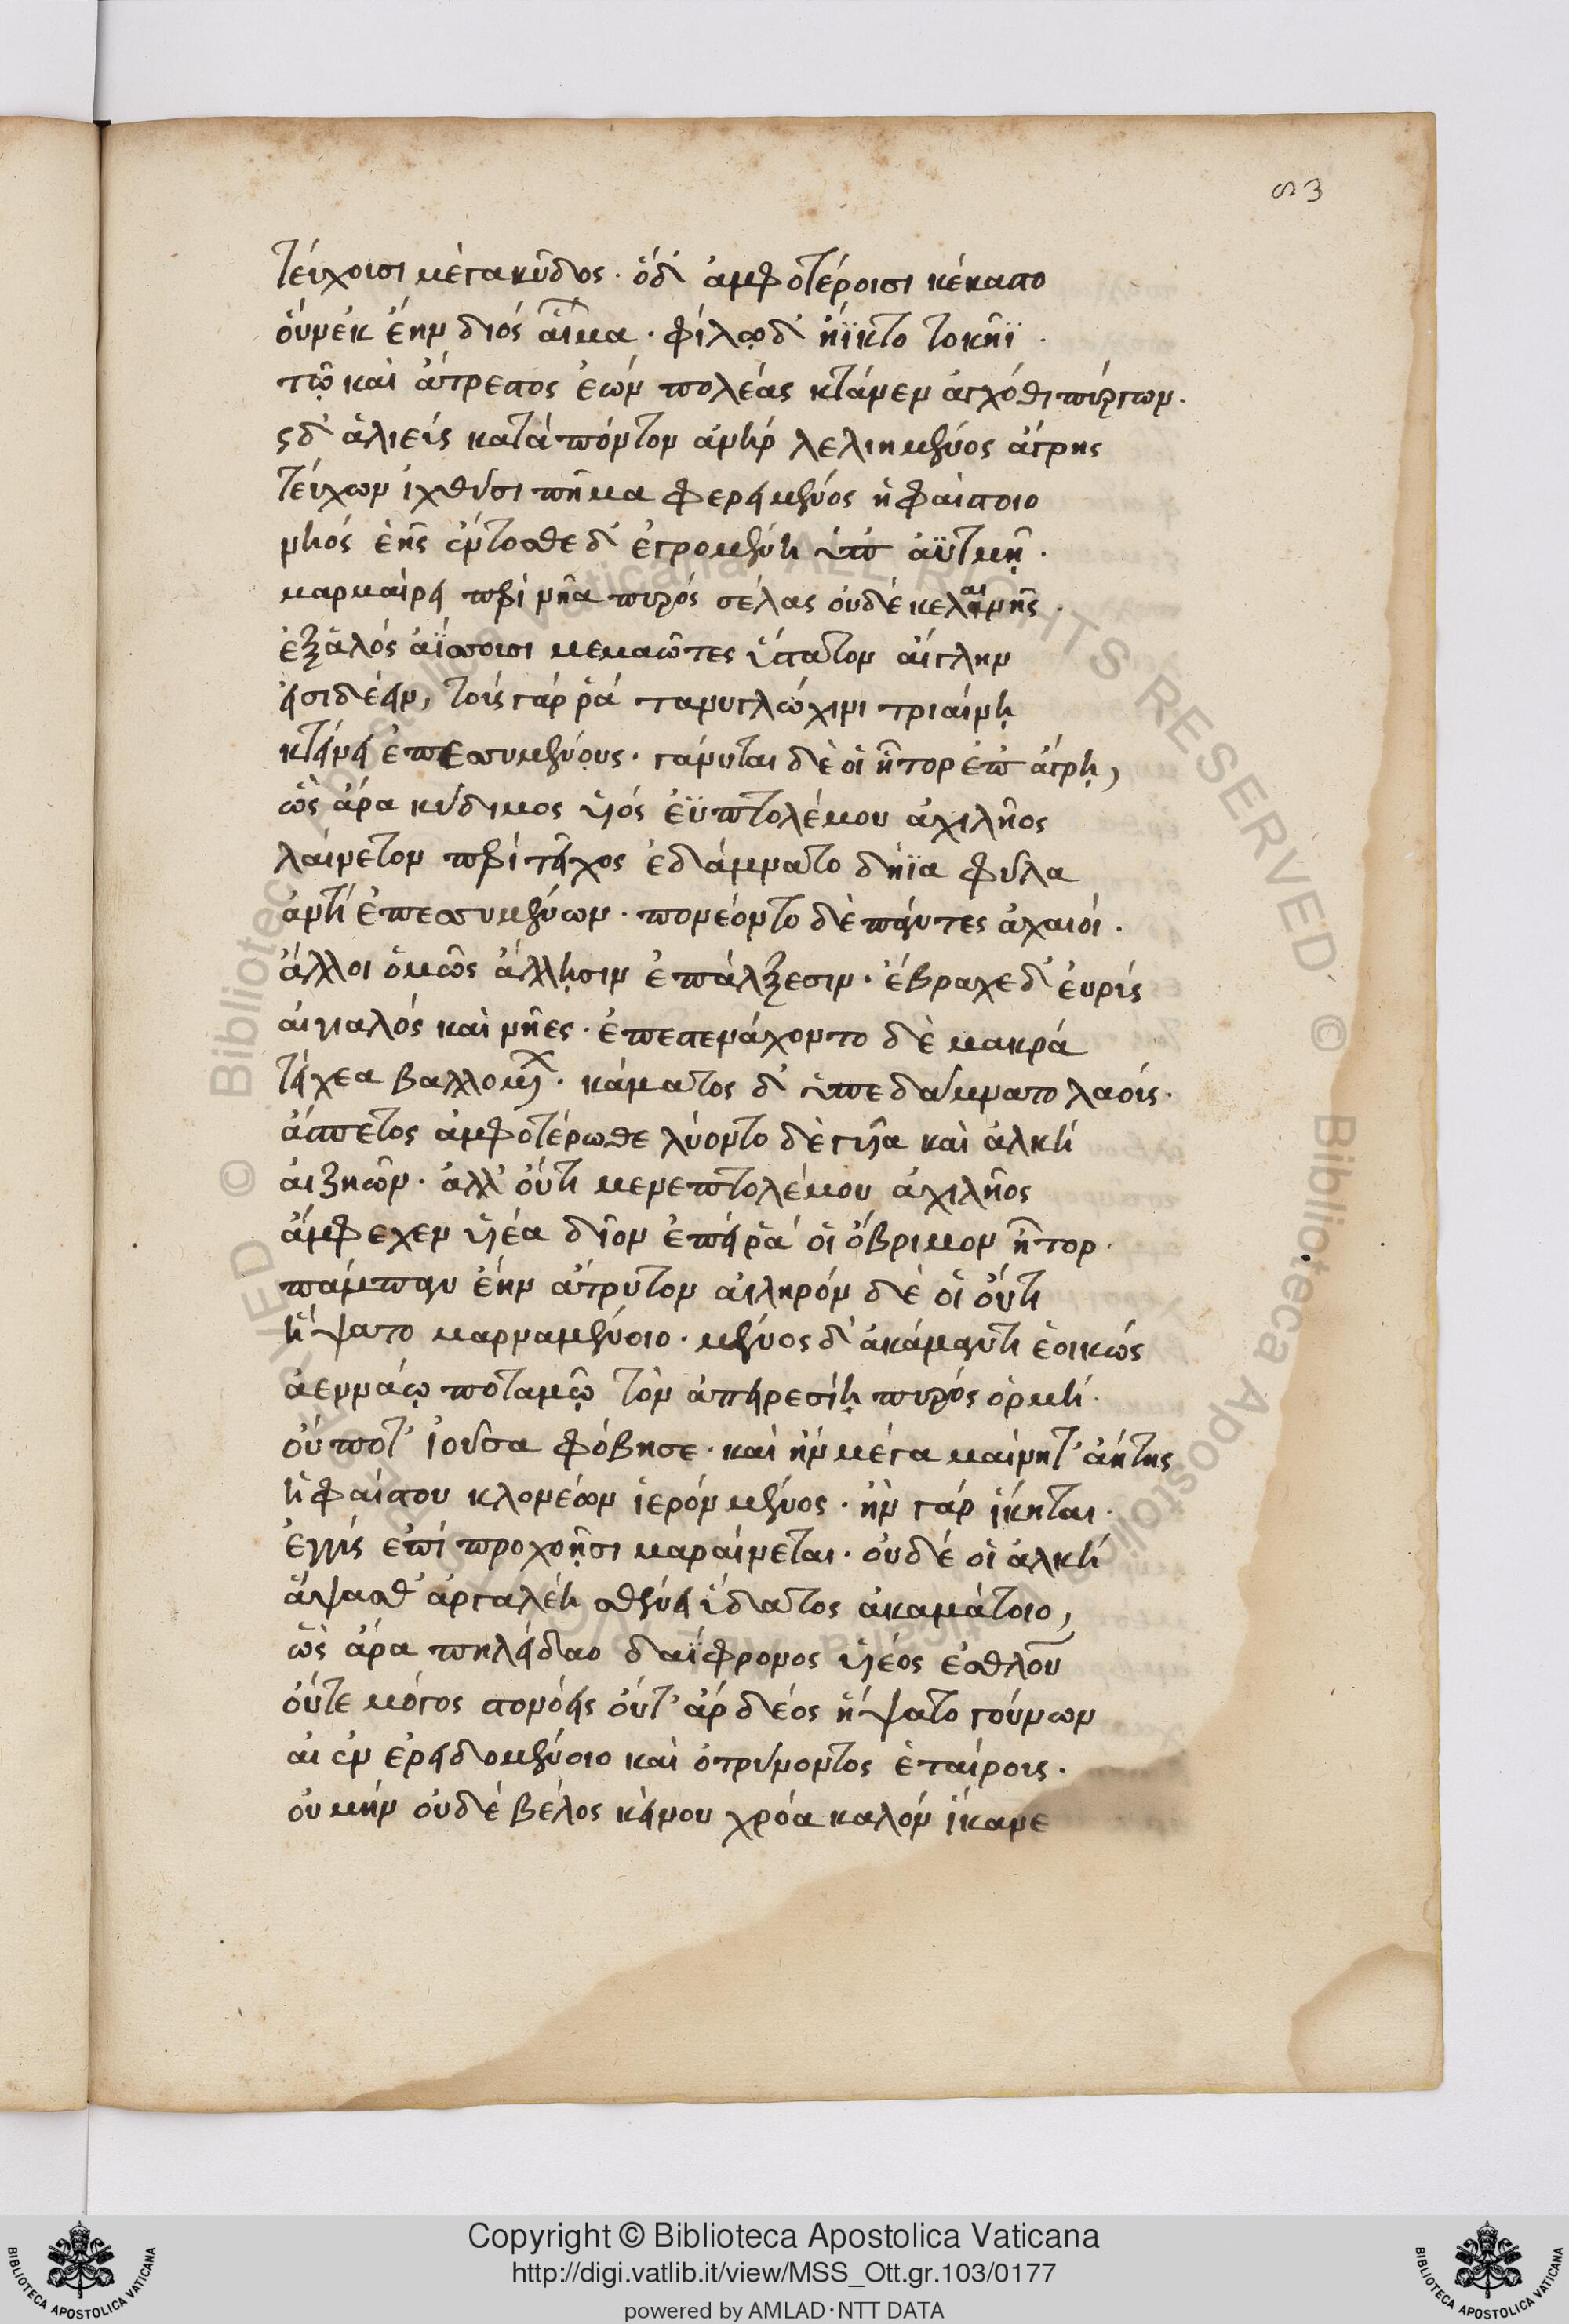 83
τεύχουσι μέγα κῦδος. ὁ δ' ἀμφοτέροισι κέκαστο
οὕνεκ ἔην διός αἷμα. φίλω δ' ἤϊκτο τοκῆϊ.
τῶ καὶ ἄτρεστος ἐὼν πολέας κτάνεν ἀγχόθι πύργων.
ς δ' ἁλιεύς κατὰ πόντον ἀνὴρ λελιημένος ἄγρης
τεύχων ἰχθύσι πῆμα φερει μένος ἡφαίστοιο
νηός ἑῆς ἔντοσθε δ' ἐγρομένη ὑπ' ἀϋτμῇ.
μαρμαίρει περὶ νῆα πυρός σέλας οὐδὲ κελαινῆς.
ἐξ ἁλός ἀΐσσουσι μεμαῶτες ὕστατον αἴγλην
εἰσιδέειν, τοὺς γάρ ῥα τανυγλώχινι τριαίνῃ
κτείνει ἐπεσσυμένους. γάνυται δὲ οἱ ἦτορ ἐπ' ἄγρῃ,
ὣς ἄρα κύδιμος υἱός ἐϋπτολέμου ἀχιλῆος
λαίνετον περὶ τεῖχος ἐδάμνατο δήϊα φῦλα
ἀντί ἐπεσσυμένων. πονέοντο δὲ πάντες ἀχαιοί.
ἄλλοι ὁμῶς ἄλλῃσιν ἐπάλξεσιν. ἔβραχε δ' εὐρύς
αἰγιαλός καὶ νῆες. ἐπεστενάχοντο δὲ μακρά
τείχεα βαλλομένων. κάματος δ' ὑπεδάμνατο λαούς.
ἄσπετος ἀμφοτέρωθε λύοντο δὲ γυῖα καὶ ἀλκή
αἰζηῶν. ἀλλ' οὔτι μενεπτολέμου ἀχιλῆος
ἄμφεχεν υἱέα δῖον ἐπεί ῥά οἱ ὄβριμον ἦτορ.
πάμπαν ἔην ἄτρυτον αἰληρόν δὲ οἱ οὔτι
ἥψατο μαρναμένοιο. μένος δ' ἀκάμαντι ἐοικώς
ἀεννάῳ ποταμῷ τὸν ἀπειρεσίη πυρός ὁρμή.
οὔποτ' ἰοῦσα φόβησε. καὶ ἢν μέγα μαίνητ' ἀήτης
ἡφαίστου κλονέων ἱερόν μένος. ἢν γάρ ἵκηται.
ἐγγύς ἐπί προχοῇσι μαραίνεται. οὐδέ οἱ ἀλκή
ἅψασθ' ἀργαλέη σθένει ὕδατος ἀκαμάτοιο,
ὣς ἄρα πηλείδαο δαΐφρονος υἱέος ἐσθλοῦ
οὔτε μόγος στονόεις οὔτ' ἄρ δέος ἥψατο γούνων
αἰ ἐν ἐρειδομένοιο καὶ ὀτρύνοντος ἑταίρους.
οὐ μὴν οὐδὲ βέλος κείνου χρόα καλόν ἵκανε
Copyright © Biblioteca Apostolica Vaticana
http://digi.vatlib.it/view/MSS_Ott.gr.103/0177
powered by AMLAD·NTT DATA